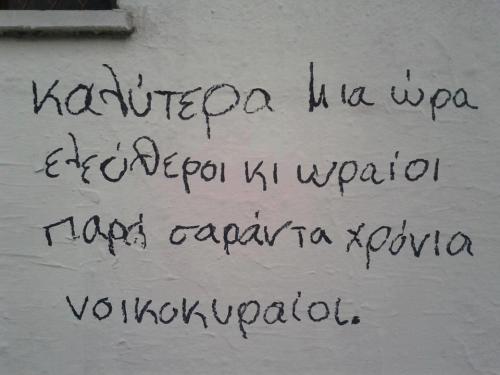 καλύτερα μια ώρα
ελεύθεροι κι ωραίοι
παρά σαράντα χρόνια
νοικοκυραίοι.